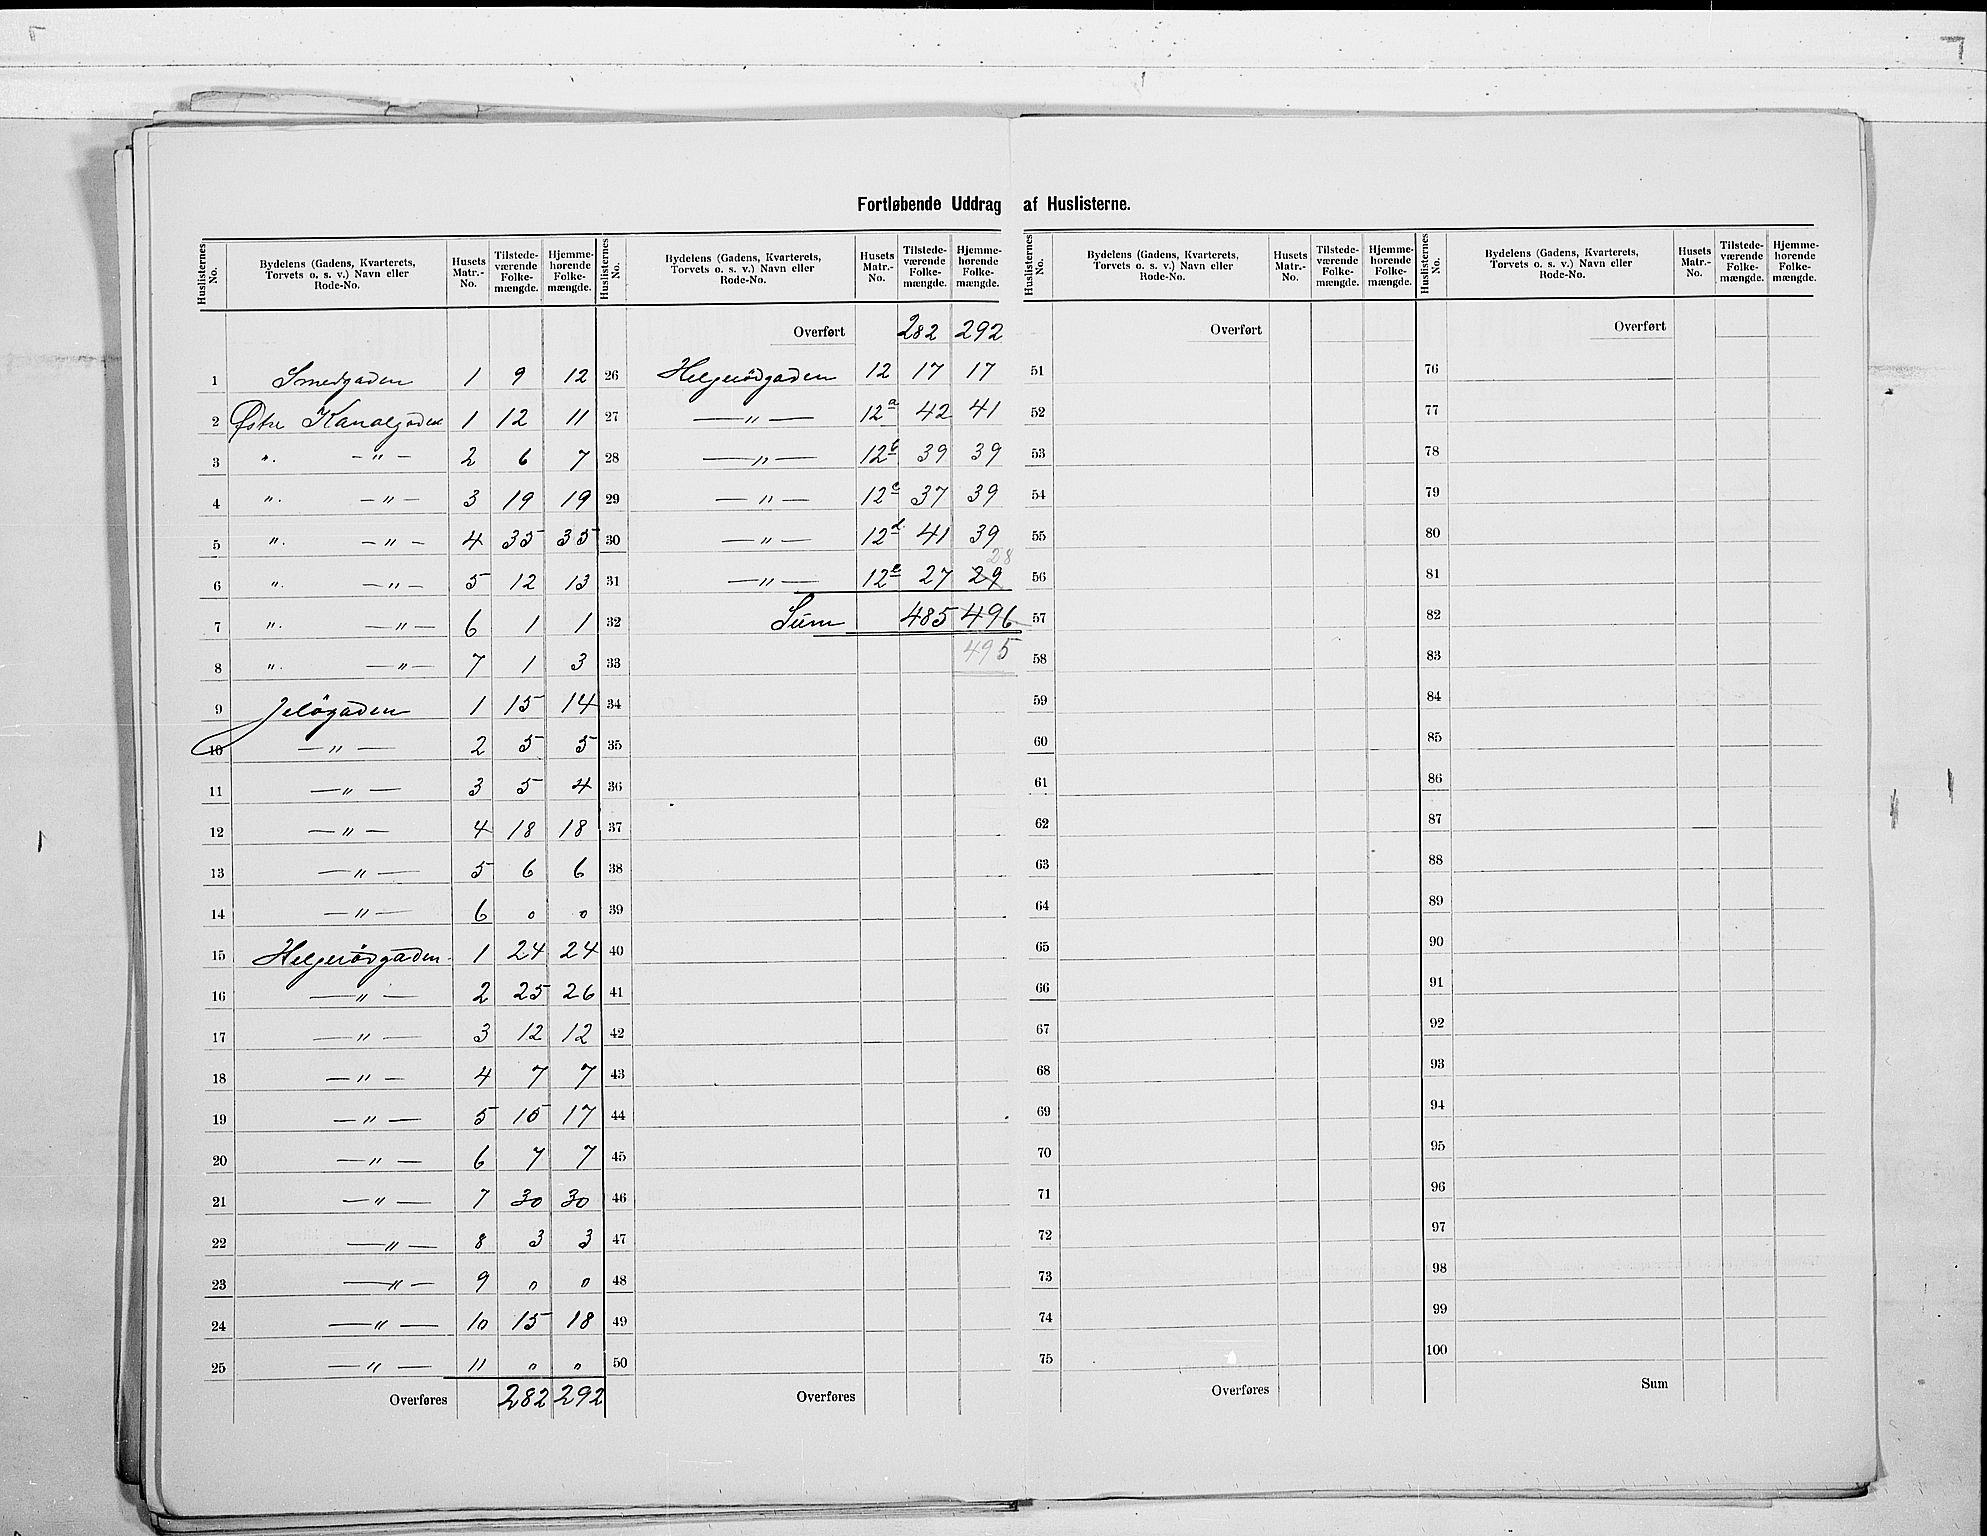 Fortløbende Uddrag af Huslisterne.
Huslisternes No. | Bydelens (Gadens, Kvarterets, Torvets o. s. v.) Navn eller Rode-No. | Husets Matr.-No. | Tilstedeværende Folkemængde. | Hjemmehørende Folkemængde.
1 Smedgaden 1 9 12
2 Østre Kanalgaden 1 12 11
3 ". — " — 2 6 7
4 ". — " — 3 19 19
5 ". — " — 4 35 35
6 ". — " — 5 12 13
7 ". — " — 6 1 1
8 ". — " — 7 1 3
9 Jeløgaden 1 15 14
10 — " — 2 5 5
11 — " — 3 5 4
12 — " — 4 18 18
13 — " — 5 6 6
14 — " — 6 0 0
15 Helgerödgaden 1 24 24
16 — " — 2 25 26
17 — " — 3 12 12
18 — " — 4 7 7
19 — " — 5 15 17
20 — " — 6 7 7
21 — " — 7 30 30
22 — " — 8 3 3
23 — " — 9 0 0
24 — " — 10 15 18
25 — " — 11 0 0
Overføres 282 292
Huslisternes No. | Bydelens (Gadens, Kvarterets, Torvets o. s. v.) Navn eller Rode-No. | Husets Matr.-No. | Tilstedeværende Folkemængde. | Hjemmehørende Folkemængde.
Overført 282 292
26 Helgerödgaden 12 17 17
27 — " — 12a 42 41
28 — " — 12b 39 39
29 — " — 12c 37 39
30 — " — 12d 41 39
28
31 — " — 12e 27 29
32 Sum 485 496
495
33
34
35
36
37
38
39
40
41
42
43
44
45
46
47
48
49
50
Overføres
Huslisternes No. | Bydelens (Gadens, Kvarterets, Torvets o. s. v.) Navn eller Rode-No. | Husets Matr.-No. | Tilstedeværende Folkemængde. | Hjemmehørende Folkemængde.
Overført
51
52
53
54
55
56
57
58
59
60
61
62
63
64
65
66
67
68
69
70
71
72
73
74
75
Overføres
Huslisternes No. | Bydelens (Gadens, Kvarterets, Torvets o. s. v.) Navn eller Rode-No. | Husets Matr.-No. | Tilstedeværende Folkemængde. | Hjemmehørende Folkemængde.
Overført
76
77
78
79
80
81
82
83
84
85
86
87
88
89
90
91
92
93
94
95
96
97
98
99
100
Sum